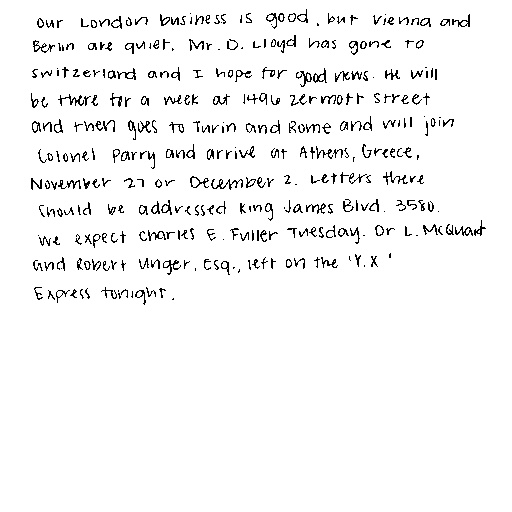 Our London business is good, but Vienna and
Berlin are quiet. Mr. D. Lloyd has gone to
Switzerland and I hope for good news. He will
be there for a week at 1496 Zermott Street
and then goes to Turin and Rome and will join
Colonel Parry and arrive at Athens, Greece,
November 27 or December 2. Letters there
should be addressed King James Blvd. 3580.
We expect Charles E. Fuller Tuesday. Dr L. McQuaid
and Robert Unger, Esq., left on the 'Y.X'
Express tonight.